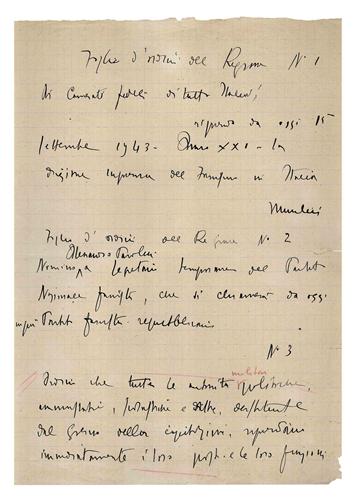 Foglio d'ordini del Regime N° 1
Ai Camerati fedeli di tutta Italia!
riprendo da oggi 15
settembre 1943 - Anno XXI - la
direzione suprema del Fascismo in Italia
Mussolini
Foglio d'ordini del Regime N° 2
Alessandro Pavolini
Nomino a segretario temporaneo del Partito
Nazionale fascista, che si chiamerà da oggi
Partito fascista repubblicano
N° 3
militari
Ordino che tutte le autorità politiche,
amministrative, scolastiche e altre, destituite
dal Governo della capitolazione, riprendano
immediatamente i loro posti e le loro funzioni